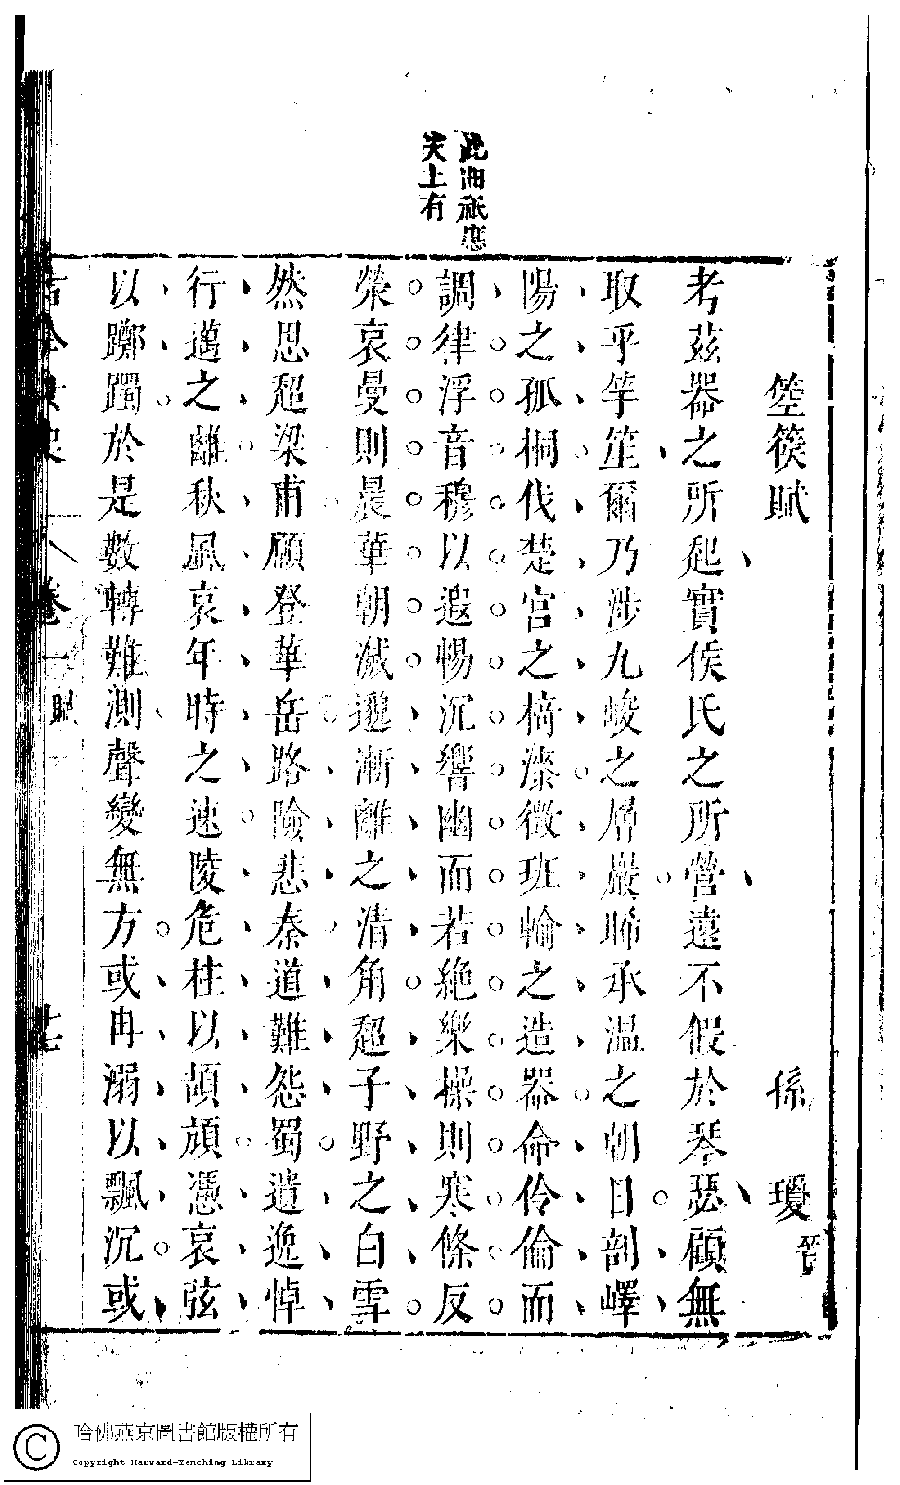 箜篌賦
孫瓊 晉
考茲器之所起實侯氏之所營遠不假於琴瑟顧無
取乎竽笙爾乃涉九峻之層巖晞承温之朝日剖嶧
陽之孤桐伐楚宮之椅漆徵班輸之造器命伶倫而
調律浮音穆以遐暢沉響幽而若絶樂操則寒條反
榮哀曼則晨華朝滅邈漸離之清角超子野之白雪
然思超梁甫願登華岳路險悲秦道難怨蜀遺逸悼
行邁之離秋風哀年時之速陵危柱以頡頏憑哀弦
以躑躅於是數轉難測聲變無方或冉溺以飄沉或
卷一
賦
十七
哈佛燕京圖書館版權所有
Copyright Harvard-Yenching Library